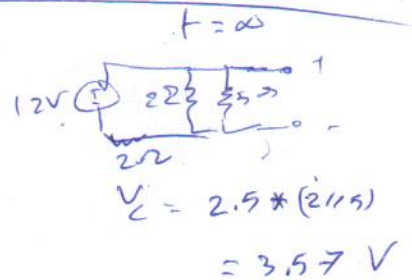 t = ∞
+
12V
2Ω
5Ω
-
2Ω
V_C = 2.5 * (2//5)
= 3.57 V